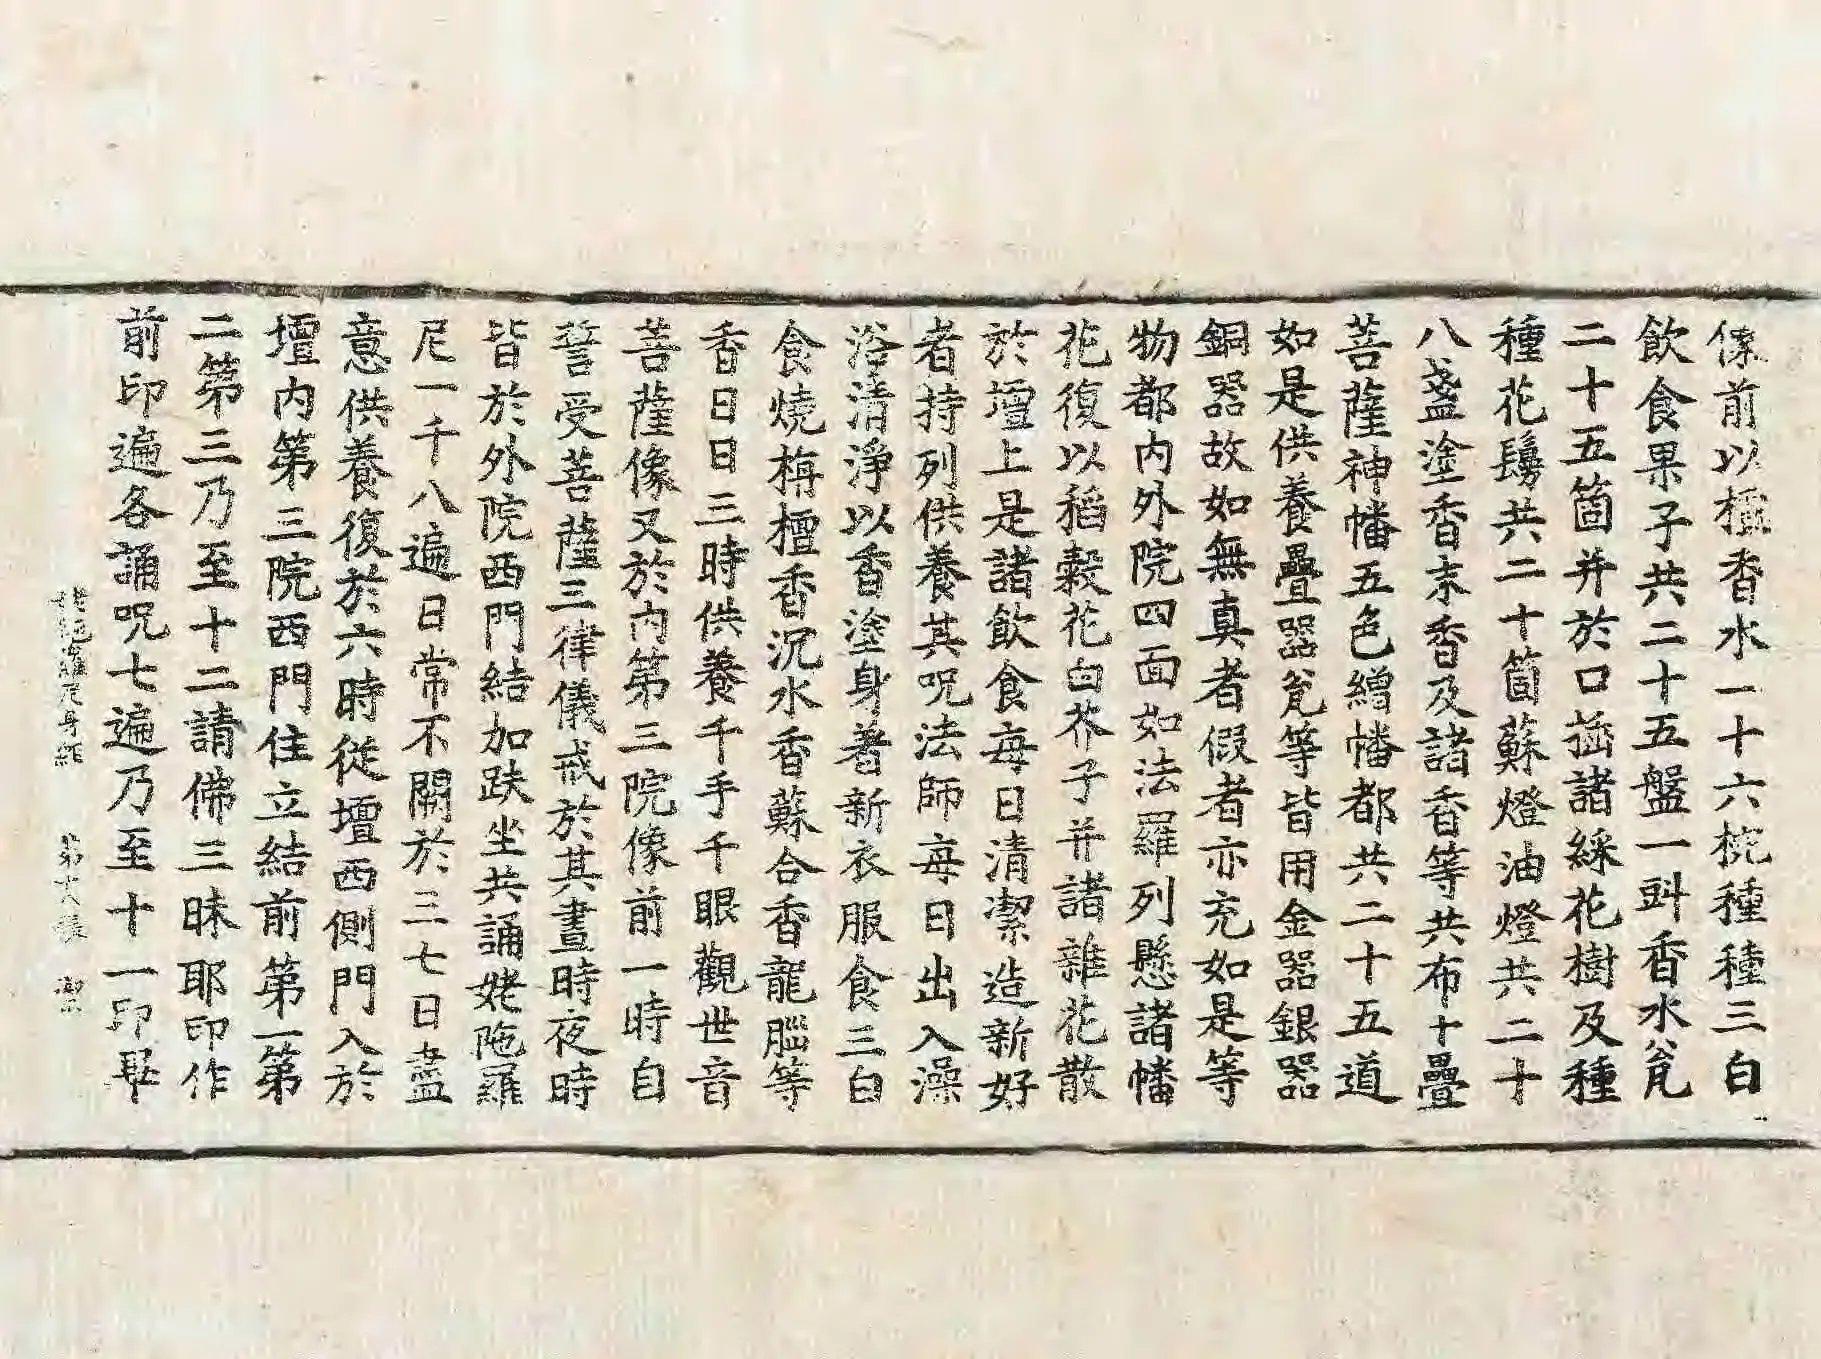 像前以檀香水一十六椀種種三白
飲食果子共二十五盤一㪷香水瓫
二十五箇并於口揷諸綵花樹及種
種花鬘共二十箇蘇燈油燈共二十
八盞塗香末香及諸香等共布十疊
菩薩神幡五色繒幡都共二十五道
如是供養疊器瓫等皆用金器銀器
銅器故如無真者假者亦充如是等
物都內外院四面如法羅列懸諸幡
花復以稻穀花白芥子并諸雜花散
於壇上是諸飲食每日清潔造新好
者持列供養其呪法師每日出入澡
浴清淨以香塗身著新衣服食三白
食燒栴檀香沉水香蘇合香龍腦等
香日日三時供養千手千眼觀世音
菩薩像又於內第三院像前一時自
誓受菩薩三律儀戒於其晝時夜時
皆於外院西門結加趺坐共誦姥陁羅
尼一千八遍日常不闕於三七日盡
意供養復於六時從壇西側門入於
壇內第三院西門住立結前第一第
二第三乃至十二請佛三昧耶印作
前印遍各誦呪七遍乃至十一印畢
陁羅尼身經　第六張